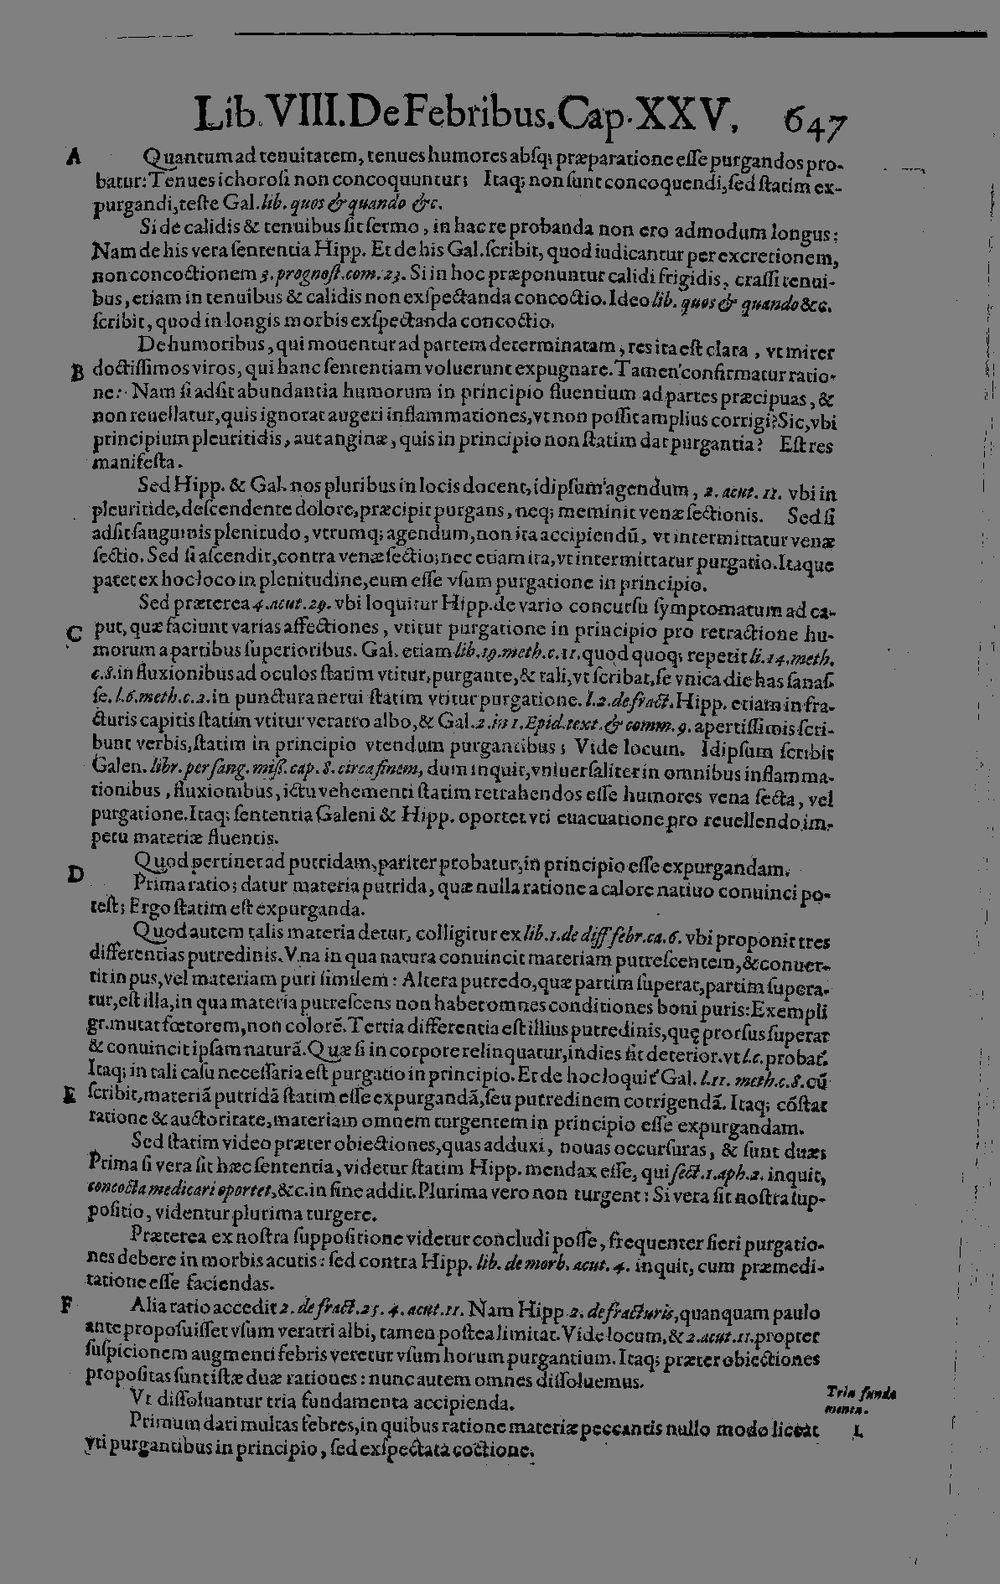 Lib. VIII. De Febribus. Cap. XXV, 647
A Quantum ad tenuitatem, tenues humores absq; præparatione eſſe purgandos pro-
batur: Tenues ichoroſi non concoquuntur; Itaq; non ſunt concoquendi, ſed ſtatim ex-
purgandi, teſte Gal. lib. quos & quando &c.
Si de calidis & tenuibus ſit ſermo, in hac re probanda non ero admodum longus;
Nam de his vera ſententia Hipp. Et de his Gal. ſcribit, quod iudicantur per excretionem,
non concoctionem 3. prognoſt. com. 23. Si in hoc præponuntur calidi frigidis, craſſi tenui-
bus, etiam in tenuibus & calidis non exſpectanda concoctio. Ideo lib. quos & quando &c.
ſcribit, quod in longis morbis exſpectanda concoctio.
De humoribus, qui mouentur ad partem determinatam, res ita eſt clara, vt mirer
B doctiſſimos viros, qui hanc ſententiam voluerunt expugnare. Tamen confirmatur ratio-
ne: Nam ſi adſit abundantia humorum in principio fluentium ad partes præcipuas, &
non reuellatur, quis ignorat augeri inflammationes, vt non poſſit amplius corrigi? Sic, vbi
principium pleuritidis, aut anginæ, quis in principio non ſtatim dat purgantia? Eſt res
manifeſta.
Sed Hipp. & Gal. nos pluribus in locis docent, idipſum agendum, 2. acut. 11. vbi in
pleuritide, deſcendente dolore, præcipit purgans, neq; meminit venæ ſectionis. Sed ſi
adſit ſanguinis plenitudo, vtrumq; agendum, non ita accipiendũ, vt intermittatur venæ
ſectio. Sed ſi aſcendit, contra venæ ſectio; nec etiam ita, vt intermittatur purgatio. Itaque
patet ex hoc loco in plenitudine, eum eſſe vſum purgatione in principio.
Sed præterea 4. acut. 29. vbi loquitur Hipp. de vario concurſu ſymptomatum ad ca-
C put, quæ faciunt varias affectiones, vtitur purgatione in principio pro retractione hu-
morum a partibus ſuperioribus. Gal. etiam lib. 19. meth. c. 11. quod quoq; repetit li. 14. meth.
c. 8. in fluxionibus ad oculos ſtatim vtitur, purgante, & tali, vt ſcribat, ſe vnica die has ſanaſ-
ſe. l. 6. meth. c. 2. in punctura nerui ſtatim vtitur purgatione. l. 2. de fract. Hipp. etiam in fra-
cturis capitis ſtatim vtitur veratro albo, & Gal. 2. in 1. Epid. text. & comm. 9. apertiſſimis ſcri-
bunt verbis, ſtatim in principio vtendum purgantibus; Vide locum. Idipſum ſcribit
Galen. libr. per ſang. miß. cap. 8. circa finem, dum inquit, vniuerſaliter in omnibus inflamma-
tionibus, fluxionibus, ictu vehementi ſtatim retrahendos eſſe humores vena ſecta, vel
purgatione. Itaq; ſententia Galeni & Hipp. oportet vti euacuatione pro reuellendo im-
petu materiæ fluentis.
Quod pertinet ad putridam, pariter probatur, in principio eſſe expurgandam.
D Prima ratio; datur materia putrida, quæ nulla ratione a calore natiuo conuinci po-
teſt; Ergo ſtatim eſt expurganda.
Quod autem talis materia detur, colligitur ex lib. 1. de diff febr. ca. 6. vbi proponit tres
differentias putredinis. Vna in qua natura conuincit materiam putreſcentem, & conuer-
tit in pus, vel materiam puri ſimilem: Altera putredo, quæ partim ſuperat, partim ſupera-
tur, eſt illa, in qua materia putreſcens non habet omnes conditiones boni puris: Exempli
gr. mutat fœtorem, non colorẽ. Tertia differentia eſt illius putredinis, quę prorſus ſuperat
& conuincit ipſam naturã. Quæ ſi in corpore relinquatur, indies fit deterior. vt l. c. probat.
Itaq; in tali caſu neceſſaria eſt purgatio in principio. Et de hoc loquit' Gal. l. 11. meth. c. 8. cũ
E ſcribit, materiã putridã ſtatim eſſe expurgandã, ſeu putredinem corrigendã. Itaq; cõſtat
ratione & auctoritate, materiam omnem turgentem in principio eſſe expurgandam.
Sed ſtatim video præter obiectiones, quas adduxi, nouas occurſuras, & ſunt duæ;
Prima ſi vera ſit hæc ſententia, videtur ſtatim Hipp. mendax eſſe, qui ſect. 1. aph. 2. inquit,
concocta medicari oportet, &c. in fine addit. Plurima vero non turgent: Si vera ſit noſtra ſup-
poſitio, videntur plurima turgere.
Præterea ex noſtra ſuppoſitione videtur concludi poſſe, frequenter fieri purgatio-
nes debere in morbis acutis: ſed contra Hipp. lib. de morb. acut. 4. inquit, cum præmedi-
tatione eſſe faciendas.
F Alia ratio accedit 2. de fract. 25. 4. acut. 11. Nam Hipp. 2. de fracturis, quanquam paulo
ante propoſuiſſet vſum veratri albi, tamen poſtea limitat. Vide locum, & 2. acut. 11. propter
ſuſpicionem augmenti febris veretur vſum horum purgantium. Itaq; præter obiectiones
propoſitas ſunt iſtæ duæ rationes: nunc autem omnes diſſoluemus.
Vt diſſoluantur tria fundamenta accipienda.
Tria funda
menta.
Primum dari multas febres, in quibus ratione materiæ peccantis nullo modo liceat
I.
vti purgantibus in principio, ſed exſpectata coctione.